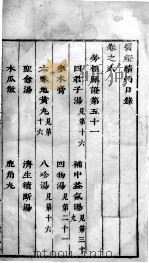 醫燈續焰目錄
卷之
勞極脈證第五十一
四君子湯見第十六 補中益氣湯見第三十九
參朮膏 四物湯見第二十一
六味地黃丸見第十六 八珍湯見第十六
金湯 濟生續斷湯
木瓜散 鹿角丸